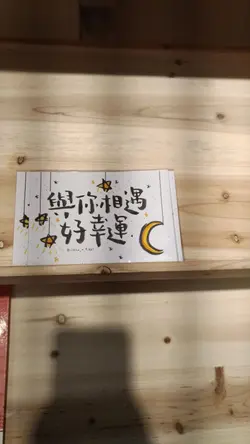 與你相遇
好幸運